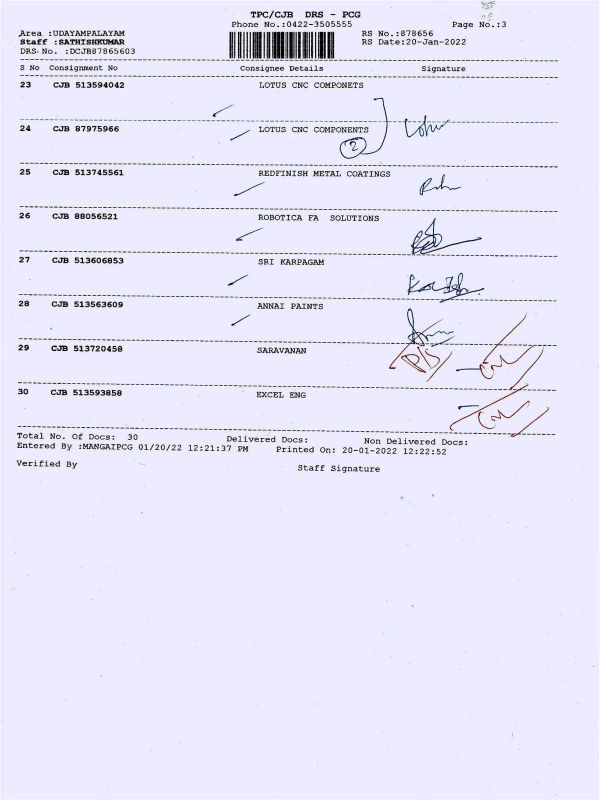 TPC/CJB DRS - PCG
Phone No.:0422-3505555 Page No.:3
Area :UDAYAMPALAYAM RS No.:878656
Staff :SATHISHKUMAR RS Date:20-Jan-2022
DRS No. :DCJB87865603
S No Consignment No Consignee Details Signature
23 CJB 513594042 LOTUS CNC COMPONETS
24 CJB 87975966 LOTUS CNC COMPONENTS
2
25 CJB 513745561 REDFINISH METAL COATINGS
26 CJB 88056521 ROBOTICA FA SOLUTIONS
27 CJB 513606853 SRI KARPAGAM
28 CJB 513563609 ANNAI PAINTS
29 CJB 513720458 SARAVANAN
30 CJB 513593858 EXCEL ENG
Total No. Of Docs: 30 Delivered Docs: Non Delivered Docs:
Entered By :MANGAIPCG 01/20/22 12:21:37 PM Printed On: 20-01-2022 12:22:52
Verified By Staff Signature